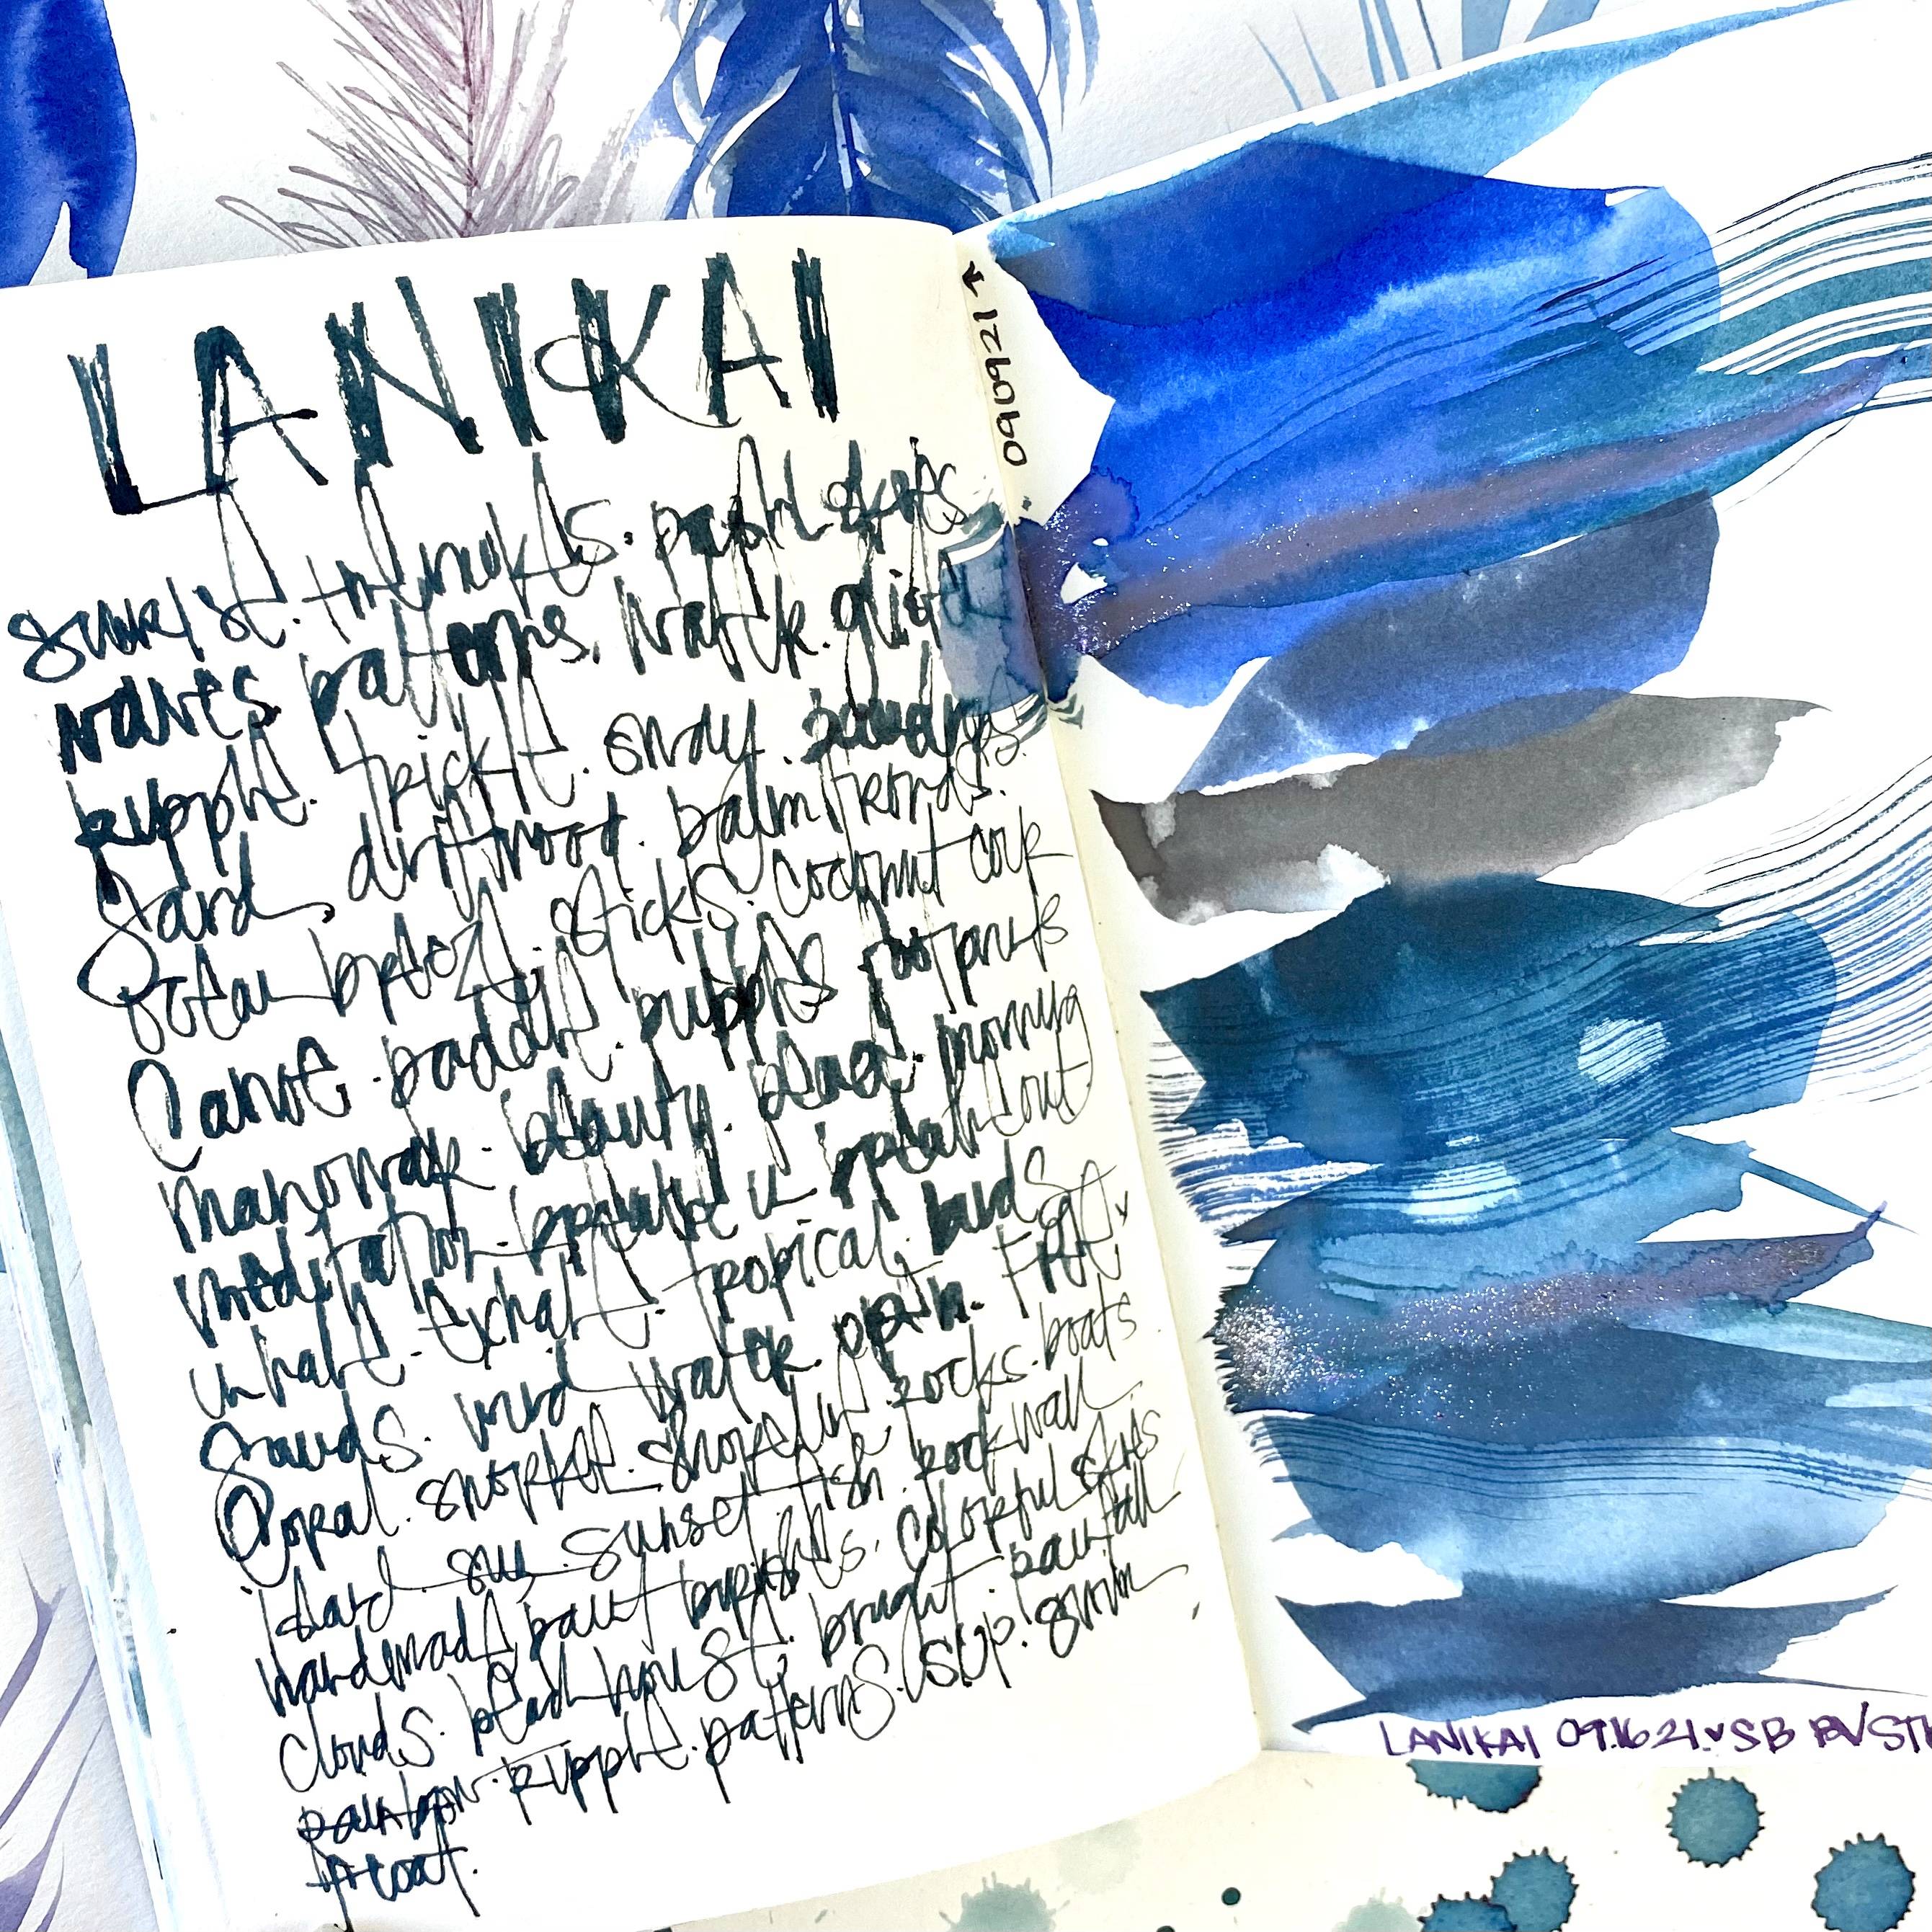 LANIKAI
sunrise. trinkets. pastel skies
waves patterns. water. quiet
ripple. trickle. sway. sandy
Sand. driftwood. palm fronds.
Ocean breeze. sticks. coconut
Canoe. paddle. ripples footprints
manowar. beauty. blend. morning
meditation. breathe in breathe out
inhale. exhale. tropical. birds
Sounds. wind water. open. free.
Coral. snorkel. shoreline rocks. boats
island. sun. sunset. fish. rock wall
handmade paint brushes. colorful skies
clouds. beach house. bright. rainfall
rainbow. ripple. patterns. SUP. swim
float.
091621
LANIKAI 09.16.21 ♥ SB